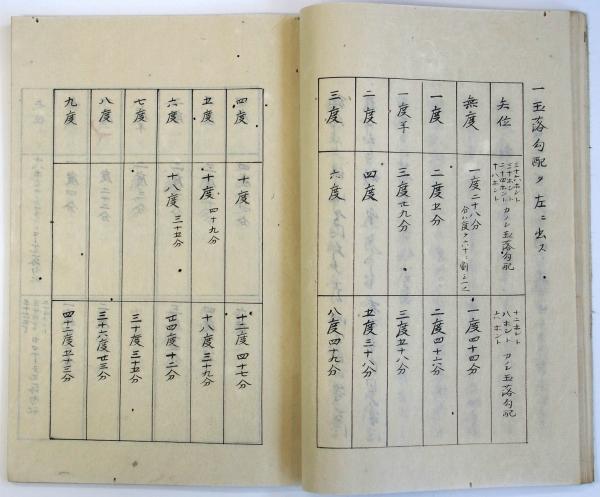 一玉落勾配ヲ左ニ出ス
矢位
三十六ホント
三十ホント
二十四ホント
十八ホント
カノン玉落勾配
十二ホント
八ホント
六ホント
カノン玉落勾配
無度
一度二十八分
一度四十四分
一度
二度五分
二度四十六分
一度半
三度廿九分
三度五十八分
二度
四度
五度三十八分
三度
六度
八度四十九分
四度
十度
十二度四十七分
五度
十度四十九分
十八度三十九分
六度
十八度三十五分
廿四度十二分
七度
三十度三十五分
八度
三十六度廿三分
九度
四十二度五十三分